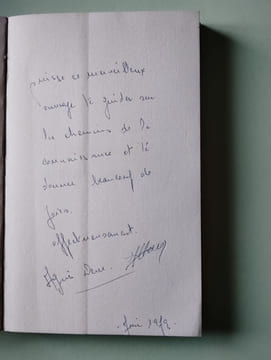 puisse ce merveilleux
ouvrage te guider sur
les chemins de la
connaissance et te
donner beaucoup de
joies.
affectueusement.
1979.